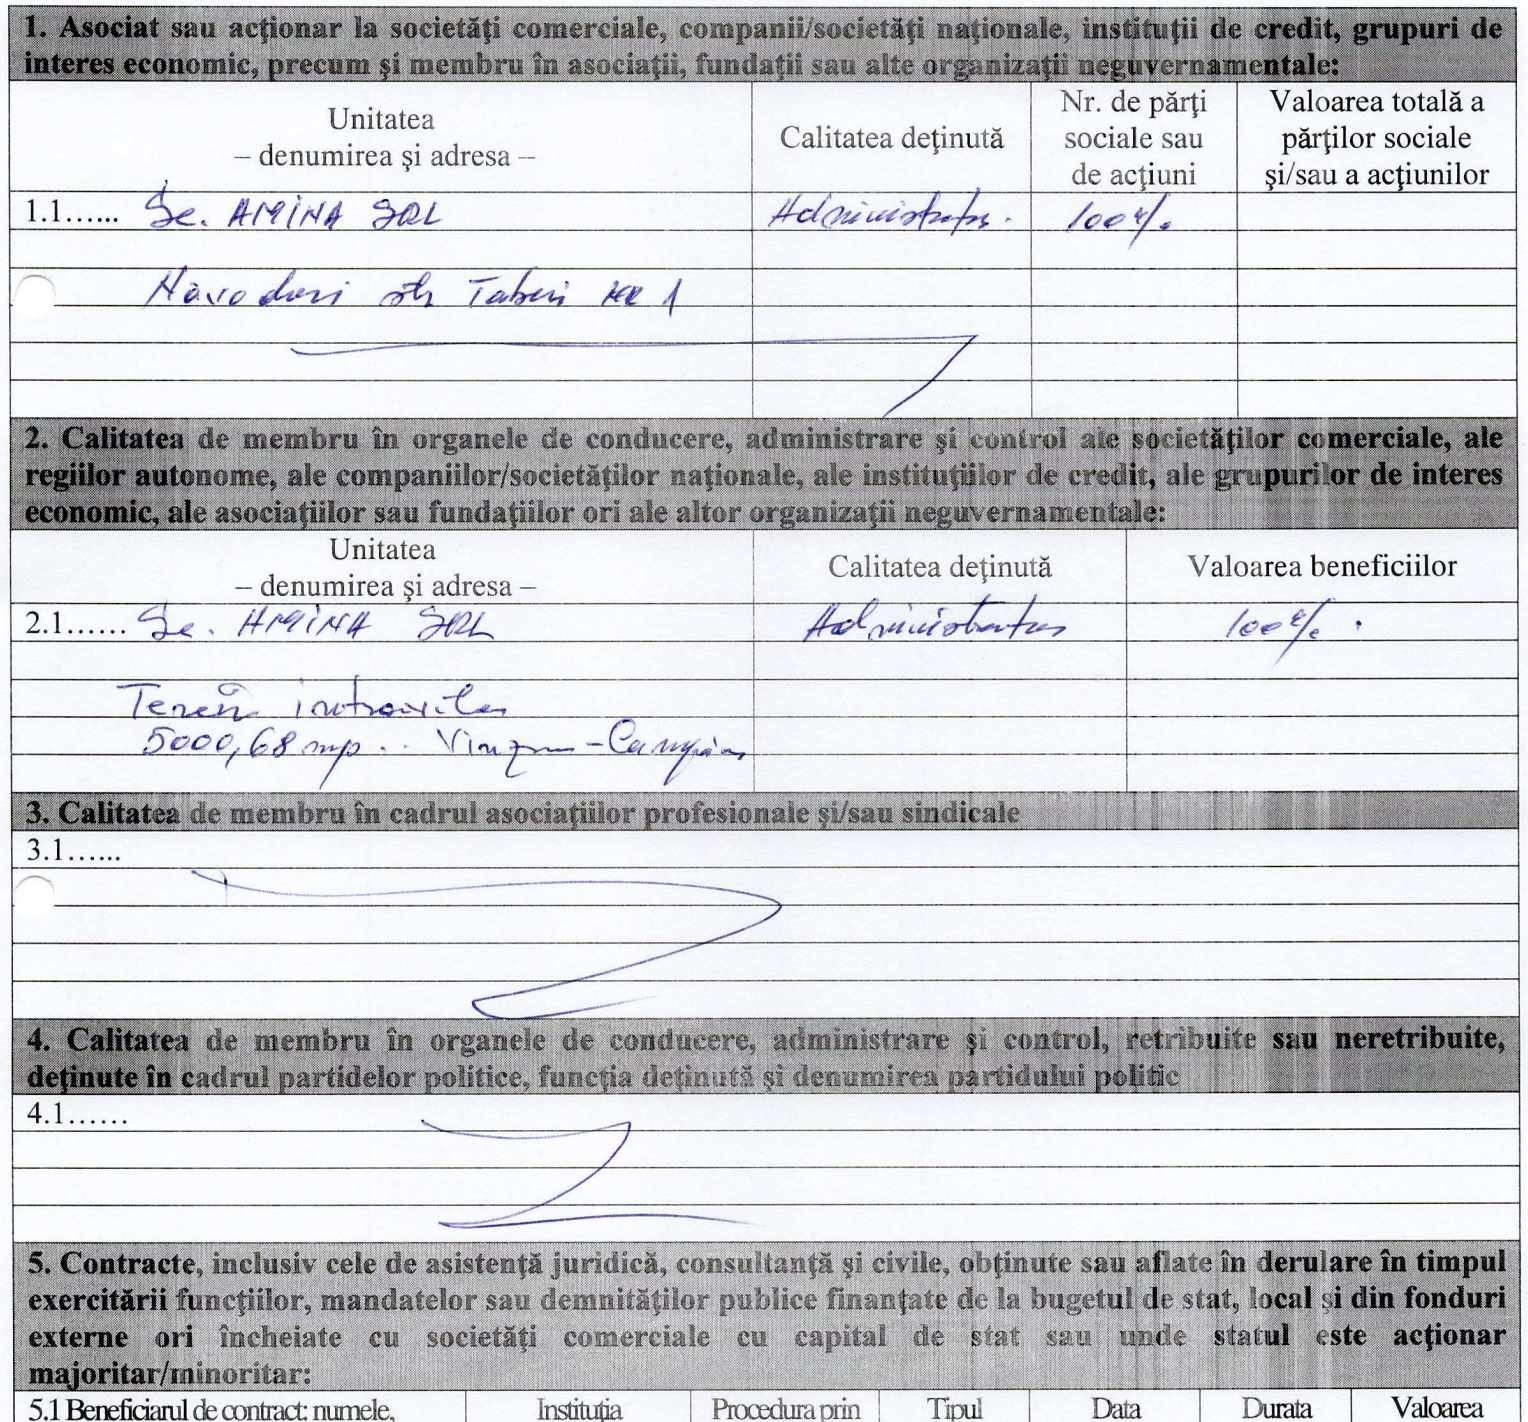 1. Asociat sau acţionar la societăţi comerciale, companii/societăţi naţionale, instituţii de credit, grupuri de
interes economic, precum şi membru în asociaţii, fundaţii sau alte organizaţii neguvernamentale:
Unitatea
– denumirea şi adresa –
Calitatea deţinută
Nr. de părţi
sociale sau
de acţiuni
Valoarea totală a
părţilor sociale
şi/sau a acţiunilor
1.1...... Sc. AMINA SRL Administrator. 100%.
Năvodari str Taberi NR 1
2. Calitatea de membru în organele de conducere, administrare şi control ale societăţilor comerciale, ale
regiilor autonome, ale companiilor/societăţilor naţionale, ale instituţiilor de credit, ale grupurilor de interes
economic, ale asociaţiilor sau fundaţiilor ori ale altor organizaţii neguvernamentale:
Unitatea
– denumirea şi adresa –
Calitatea deţinută
Valoarea beneficiilor
2.1...... Sc. AMINA SRL Administrator 100%.
Teren intravilan
5000,68 mp.
3. Calitatea de membru în cadrul asociaţiilor profesionale şi/sau sindicale
3.1......
4. Calitatea de membru în organele de conducere, administrare şi control, retribuite sau neretribuite,
deţinute în cadrul partidelor politice, funcţia deţinută şi denumirea partidului politic
4.1......
5. Contracte, inclusiv cele de asistenţă juridică, consultanţă şi civile, obţinute sau aflate în derulare în timpul
exercitării funcţiilor, mandatelor sau demnităţilor publice finanţate de la bugetul de stat, local şi din fonduri
externe ori încheiate cu societăţi comerciale cu capital de stat sau unde statul este acţionar
majoritar/minoritar:
5.1 Beneficiarul de contract: numele, Instituţia Procedura prin Tipul Data Durata Valoarea